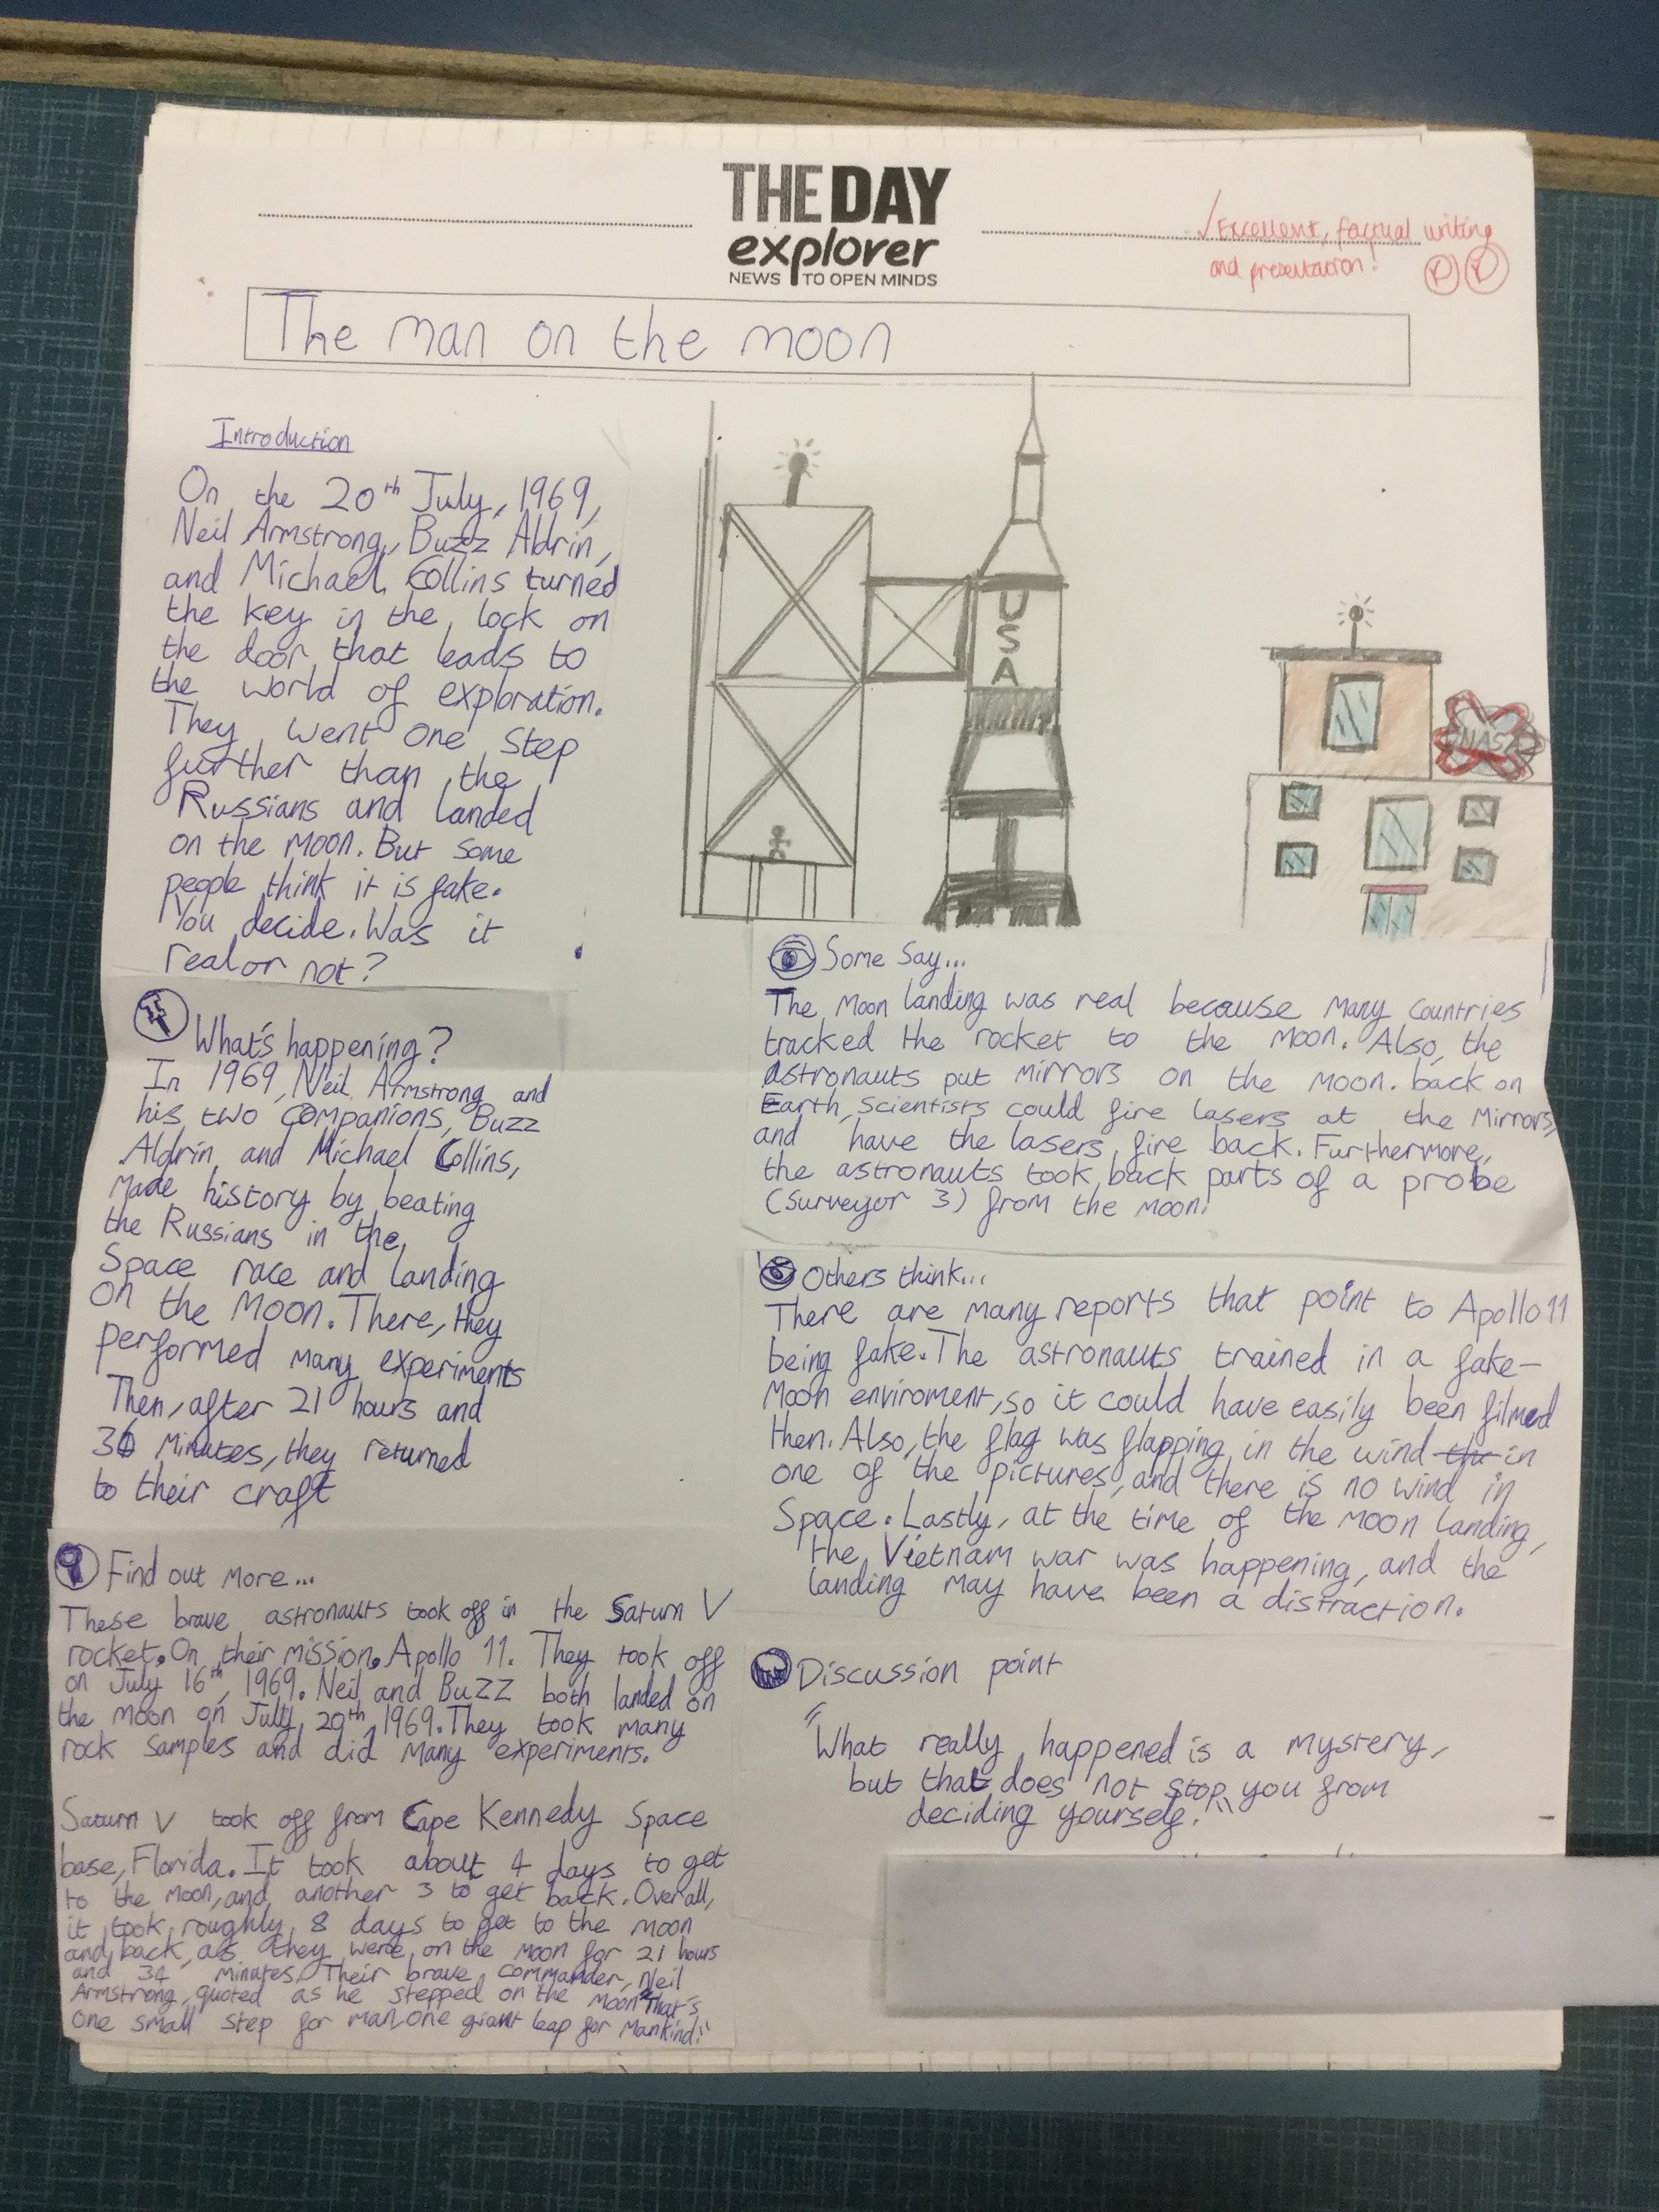 THE DAY
explorer
NEWS TO OPEN MINDS
✓Excellent, factual writing
and presentation!
The man on the moon
Introduction
On the 20th July, 1969,
Neil Armstrong, Buzz Aldrin,
and Michael Collins turned
the key in the lock on
the door that leads to
the world of exploration.
They went one step
further than the
Russians and landed
on the moon. But some
people think it is fake.
You decide. Was it
real or not?
What's happening?
In 1969, Neil Armstrong and
his two companions, Buzz
Aldrin, and Michael Collins,
made history by beating
the Russians in the
Space race and landing
on the Moon. There, they
performed many experiments
Then, after 21 hours and
36 minutes, they returned
to their craft
Find out more...
These brave astronauts took off in the Saturn V
rocket. On their mission, Apollo 11. They took off
on July 16th, 1969. Neil and Buzz both landed on
the moon on July 20th, 1969. They took many
rock samples and did many experiments.
Saturn V took off from Cape Kennedy Space
base, Florida. It took about 4 days to get
to the moon, and another 3 to get back. Overall,
it took roughly 8 days to get to the moon
and back, as they were on the moon for 21 hours
and 34 minutes. Their brave commander, Neil
Armstrong, quoted as he stepped on the moon "That's
one small step for man, one giant leap for mankind."
USA
NASA
Some say...
The Moon landing was real because many countries
tracked the rocket to the moon. Also, the
astronauts put mirrors on the moon. back on
Earth, Scientists could fire lasers at the mirrors,
and have the lasers fire back. Furthermore,
the astronauts took back parts of a probe
(Surveyor 3) from the moon!
Others think...
There are many reports that point to Apollo 11
being fake. The astronauts trained in a fake-
moon enviroment, so it could have easily been filmed
then. Also, the flag was flapping in the wind the in
one of the pictures, and there is no wind in
Space. Lastly, at the time of the moon landing,
the Vietnam war was happening, and the
landing may have been a distraction.
Discussion point
"What really happened is a mystery,
but that does not stop you from
deciding yourself."